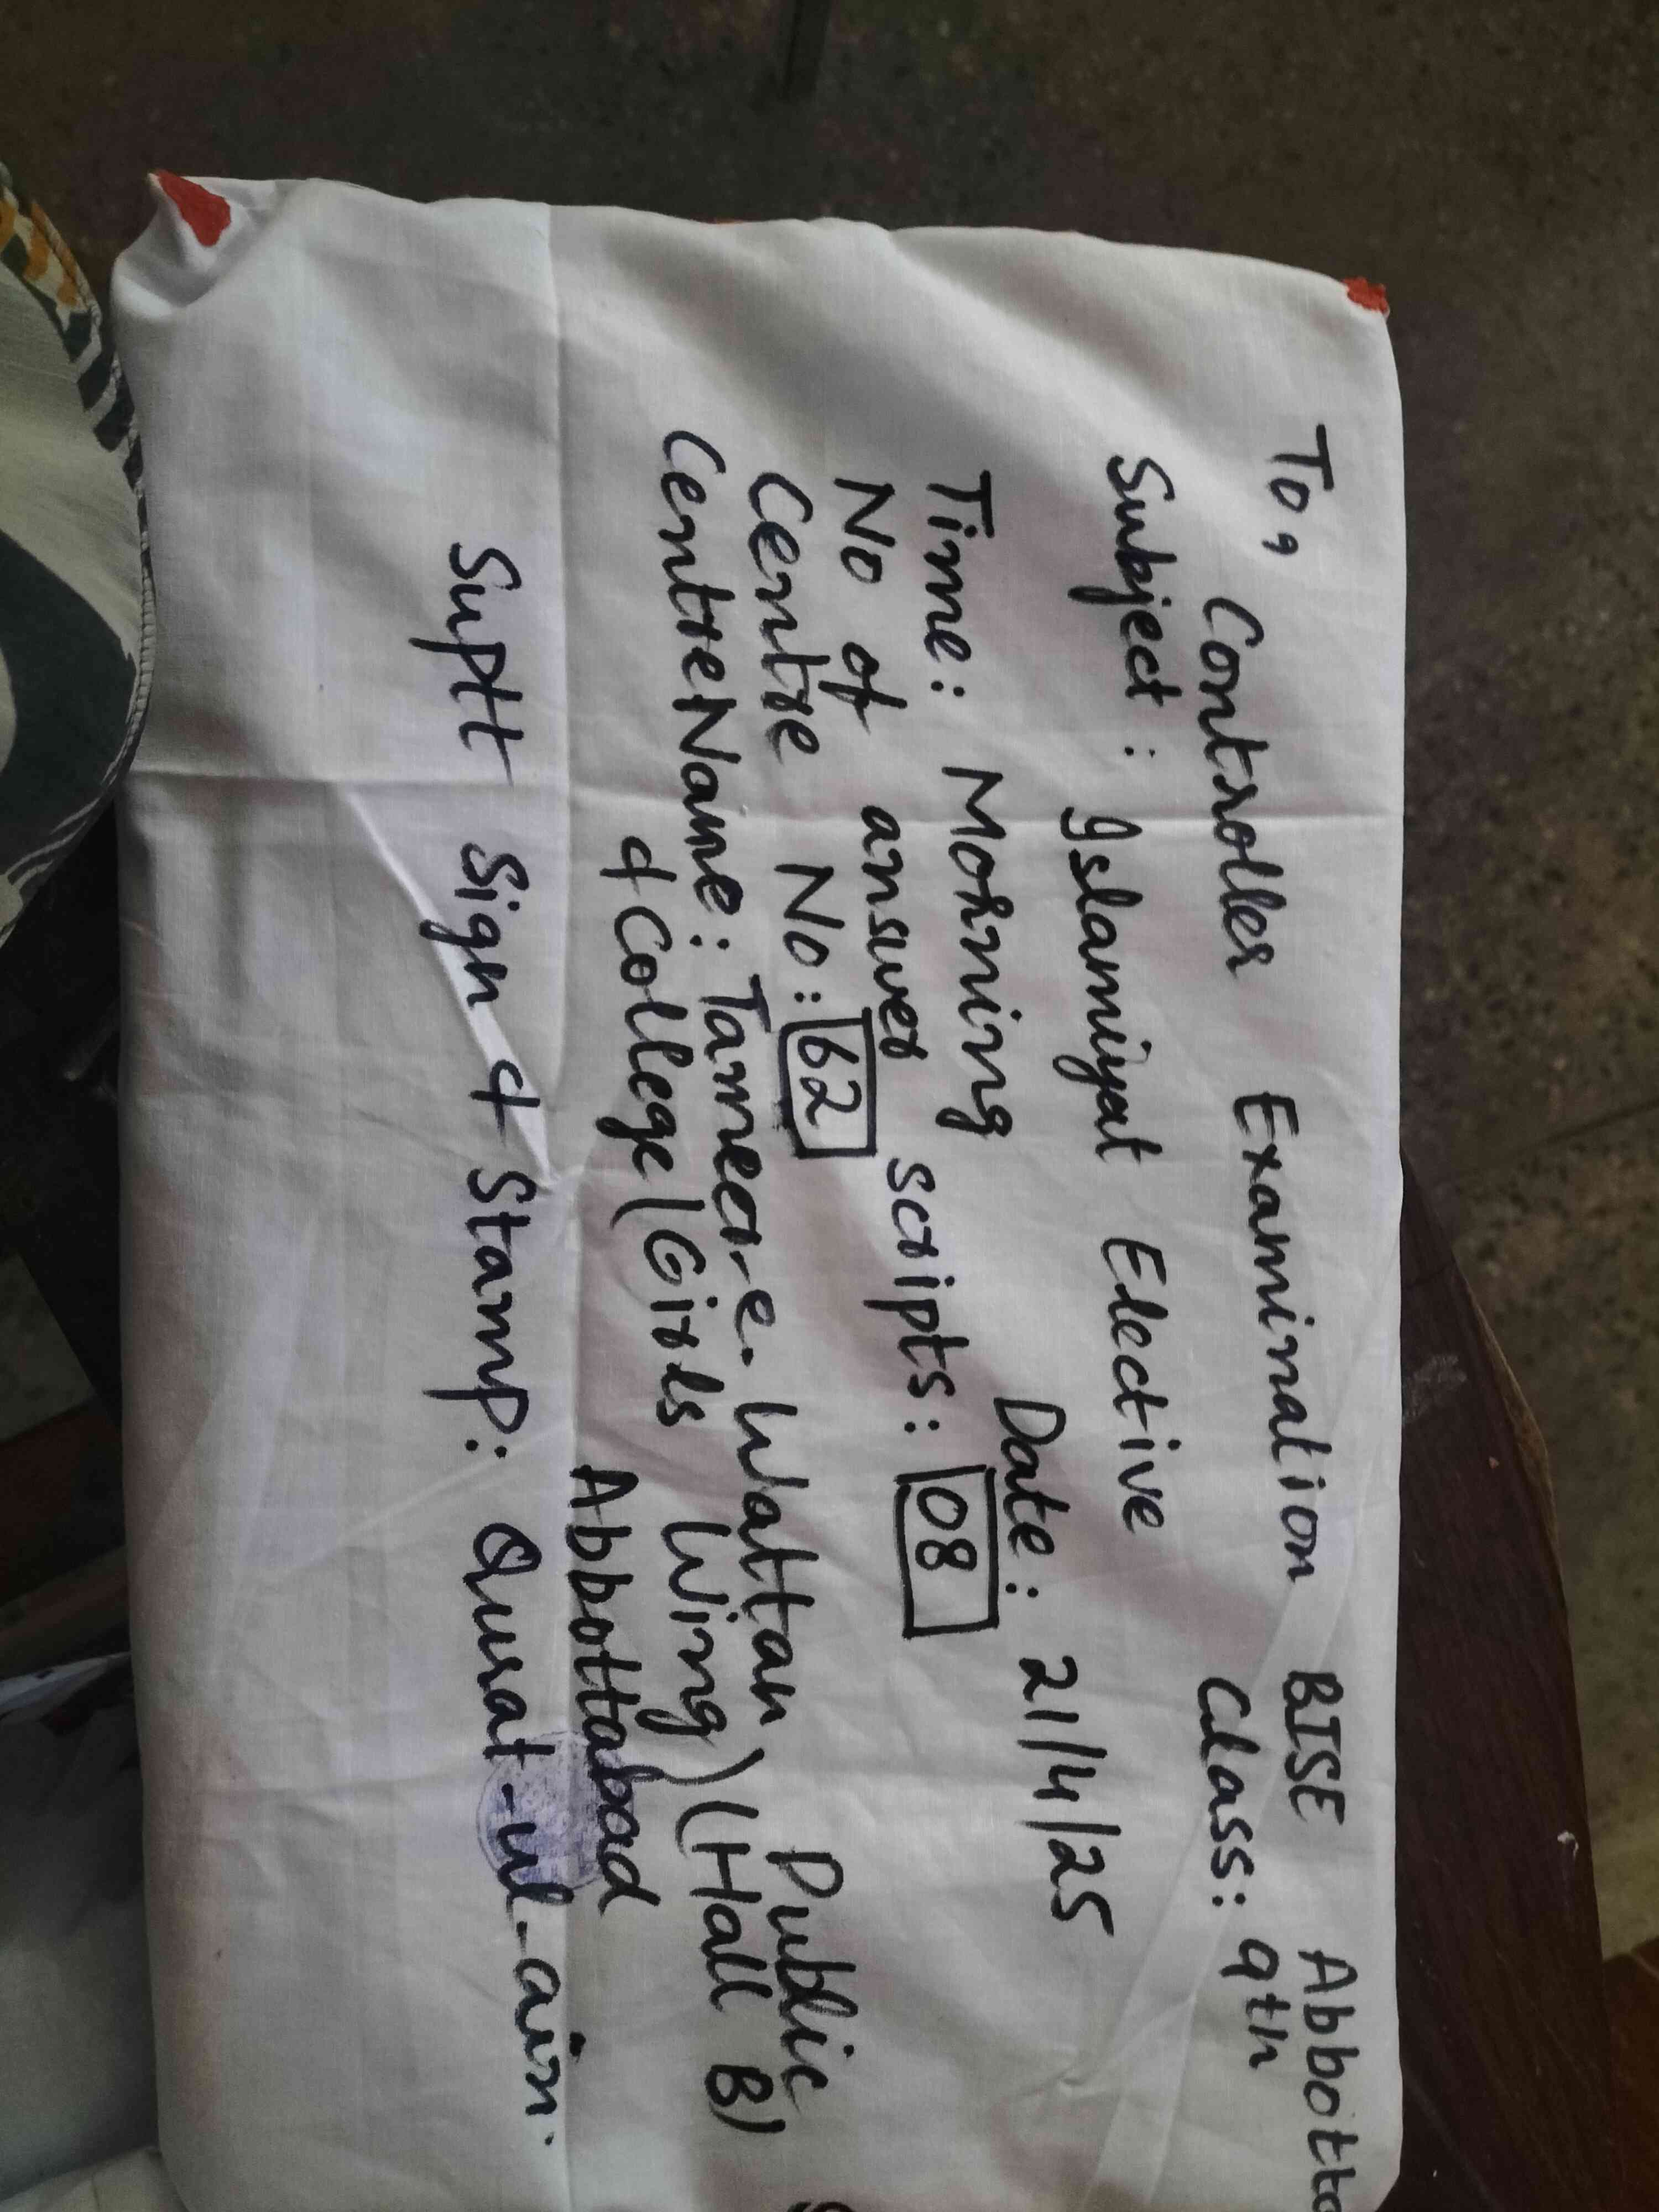 To,
Controller Examination BISE Abbotta
Subject: Islamiyat Elective Class: 9th
Time: Morning Date: 21/4/25
No of answer scripts: 08
Centre No: 62
Centre Name: Tameer-e-Wattan Public
& College (Girls Wing) (Hall B)
Abbottabad
Suptt Sign & Stamp: Qurat-ul-ain